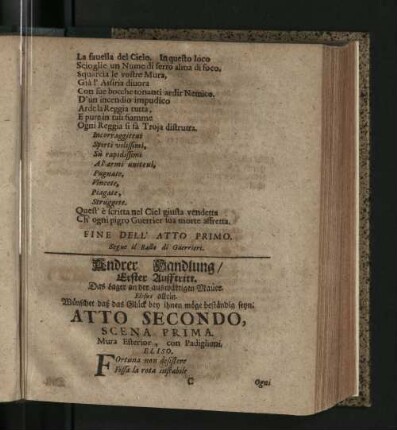 La fauella del Cielo. In questo loco
Scioglie un Nume di ferro alma di foco.
Squarcia le vostre Mura,
Già l' Assiria divora
Con sue bocche tonanti ardir Nemico.
D'un incendio impudico
Arde la Reggia tutta,
E pur in tali fiamme
Ogni Reggia si fà Troja distrutta.
Incorraggitevi
Spirti volissimi,
Sù rapidissimi
A l'armi
Pugnate,
Vincete,
Piagate,
Struggete.
Quest' è scritta nel Ciel giusta vendetta
Ch' ogni pigro Guerrier sua morte affretta.
FINE DELL' ATTO PRIMO.
Segue il Ballo di Guerrieri.
Andrer Handlung/
Erster Aufftritt.
Das Lager an der außwärtigen Mauer.
Elisus allein.
Wünschet daß das Glück bey ihnen möge beständig seyn.
ATTO SECONDO,
SCENA PRIMA.
Mura Esteriori, con Padiglioni.
ELISO.
FOrtuna non desistere
Fissa la rota instabile
C Ogni